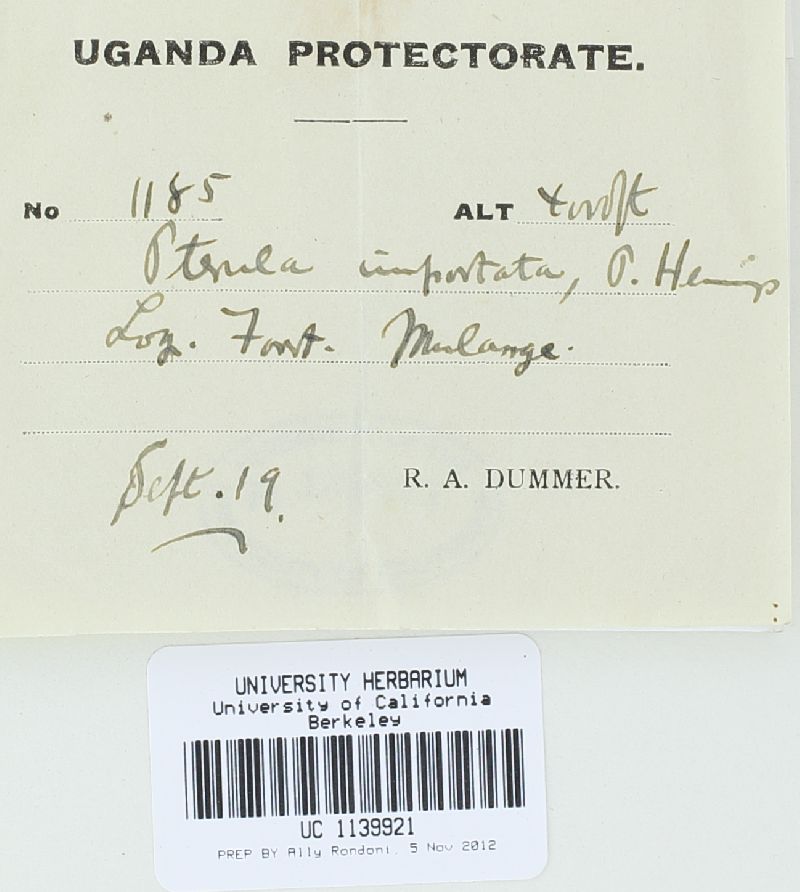 UGANDA PROTECTORATE.
No 1185 ALT 4000ft
Pterula importata, P. Hennings
Log. Forst. Mulange.
Sept. 19.
R. A. DUMMER.
UNIVERSITY HERBARIUM
University of California
Berkeley
UC 1139921
PREP BY Ally Rondoni, 5 Nov 2012